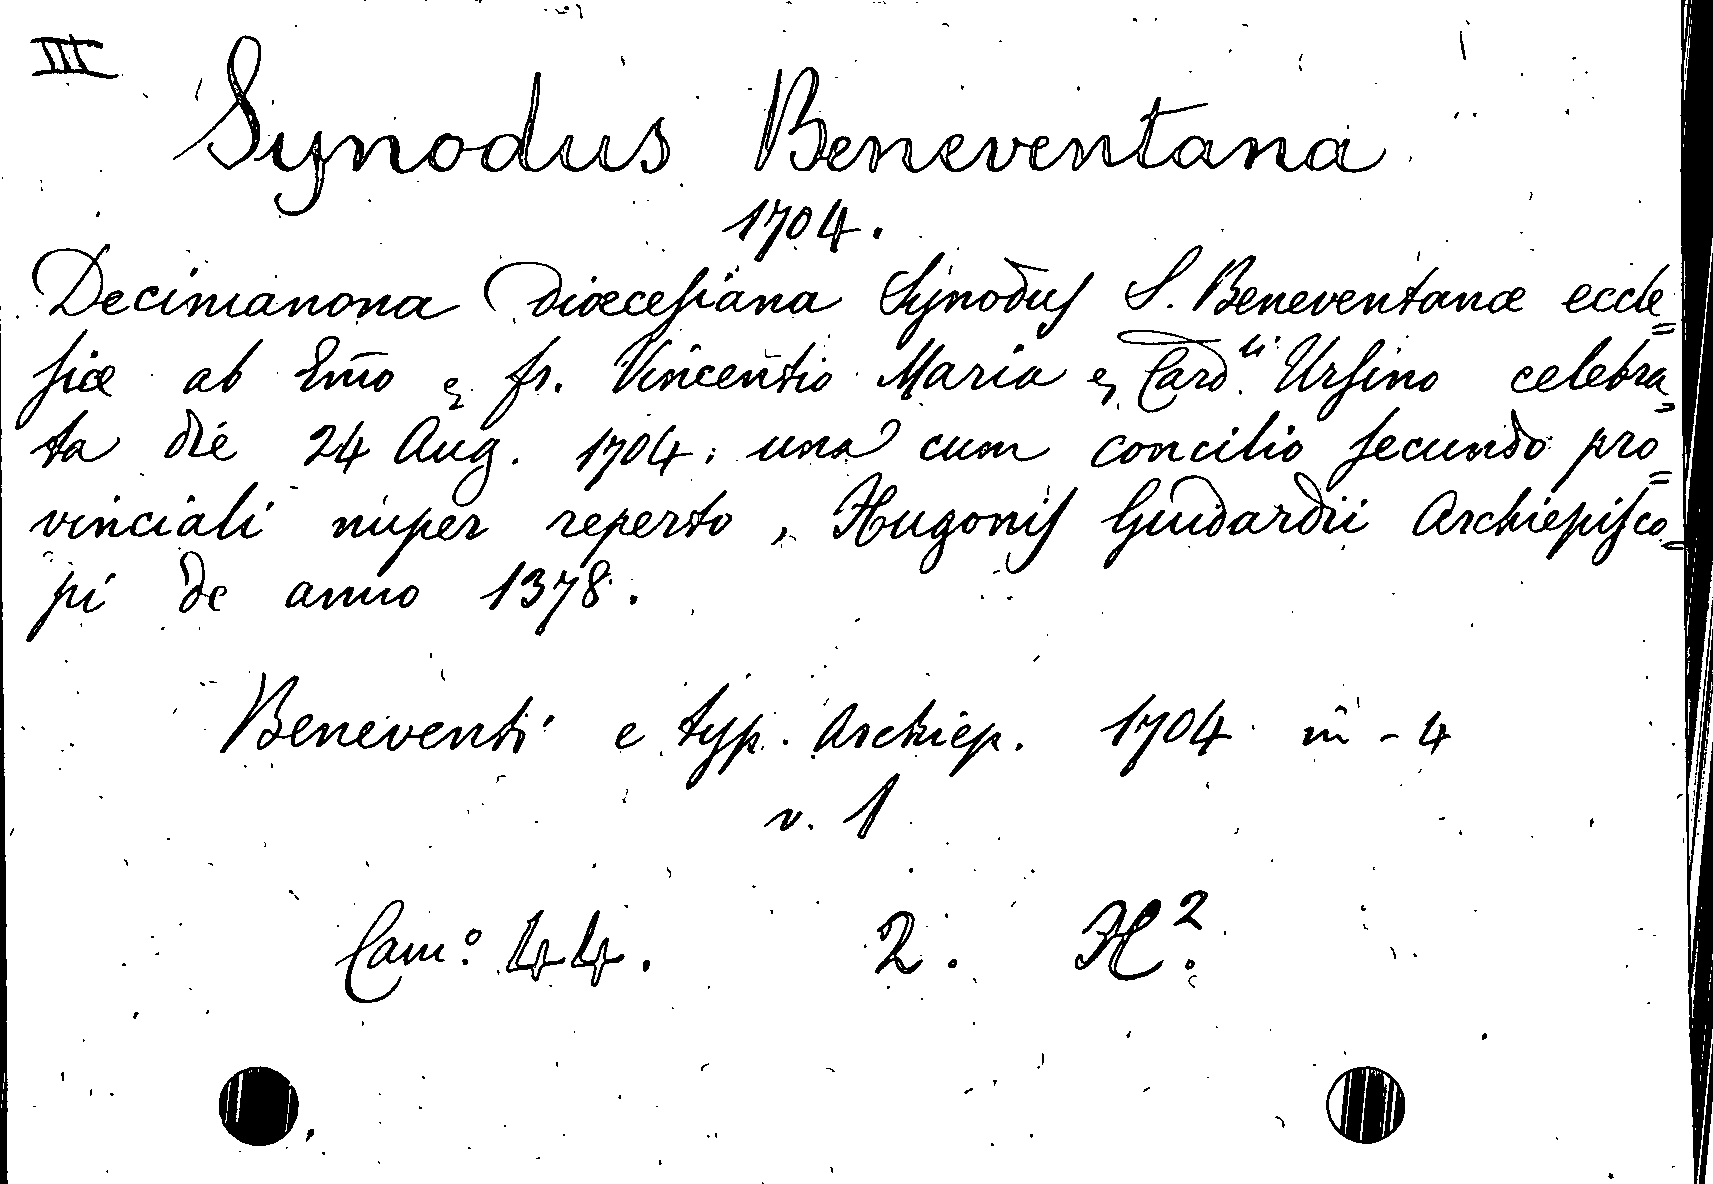 III
Synodus Beneventana
1704.
Decimanona Diœcesiana Synodus S. Beneventanæ eccle=
siæ ab Emo fr. Vincentio Maria Card.li Ursino celebra=
ta die 24 Aug. 1704. una cum concilio secundo pro=
vinciali nuper reperto, Hugonis Guidardii Archiepisco=
pi de anno 1378.
Beneventi e typ. Archiep. 1704 in - 4
v. 1
Cam.o 44. 2. H.2